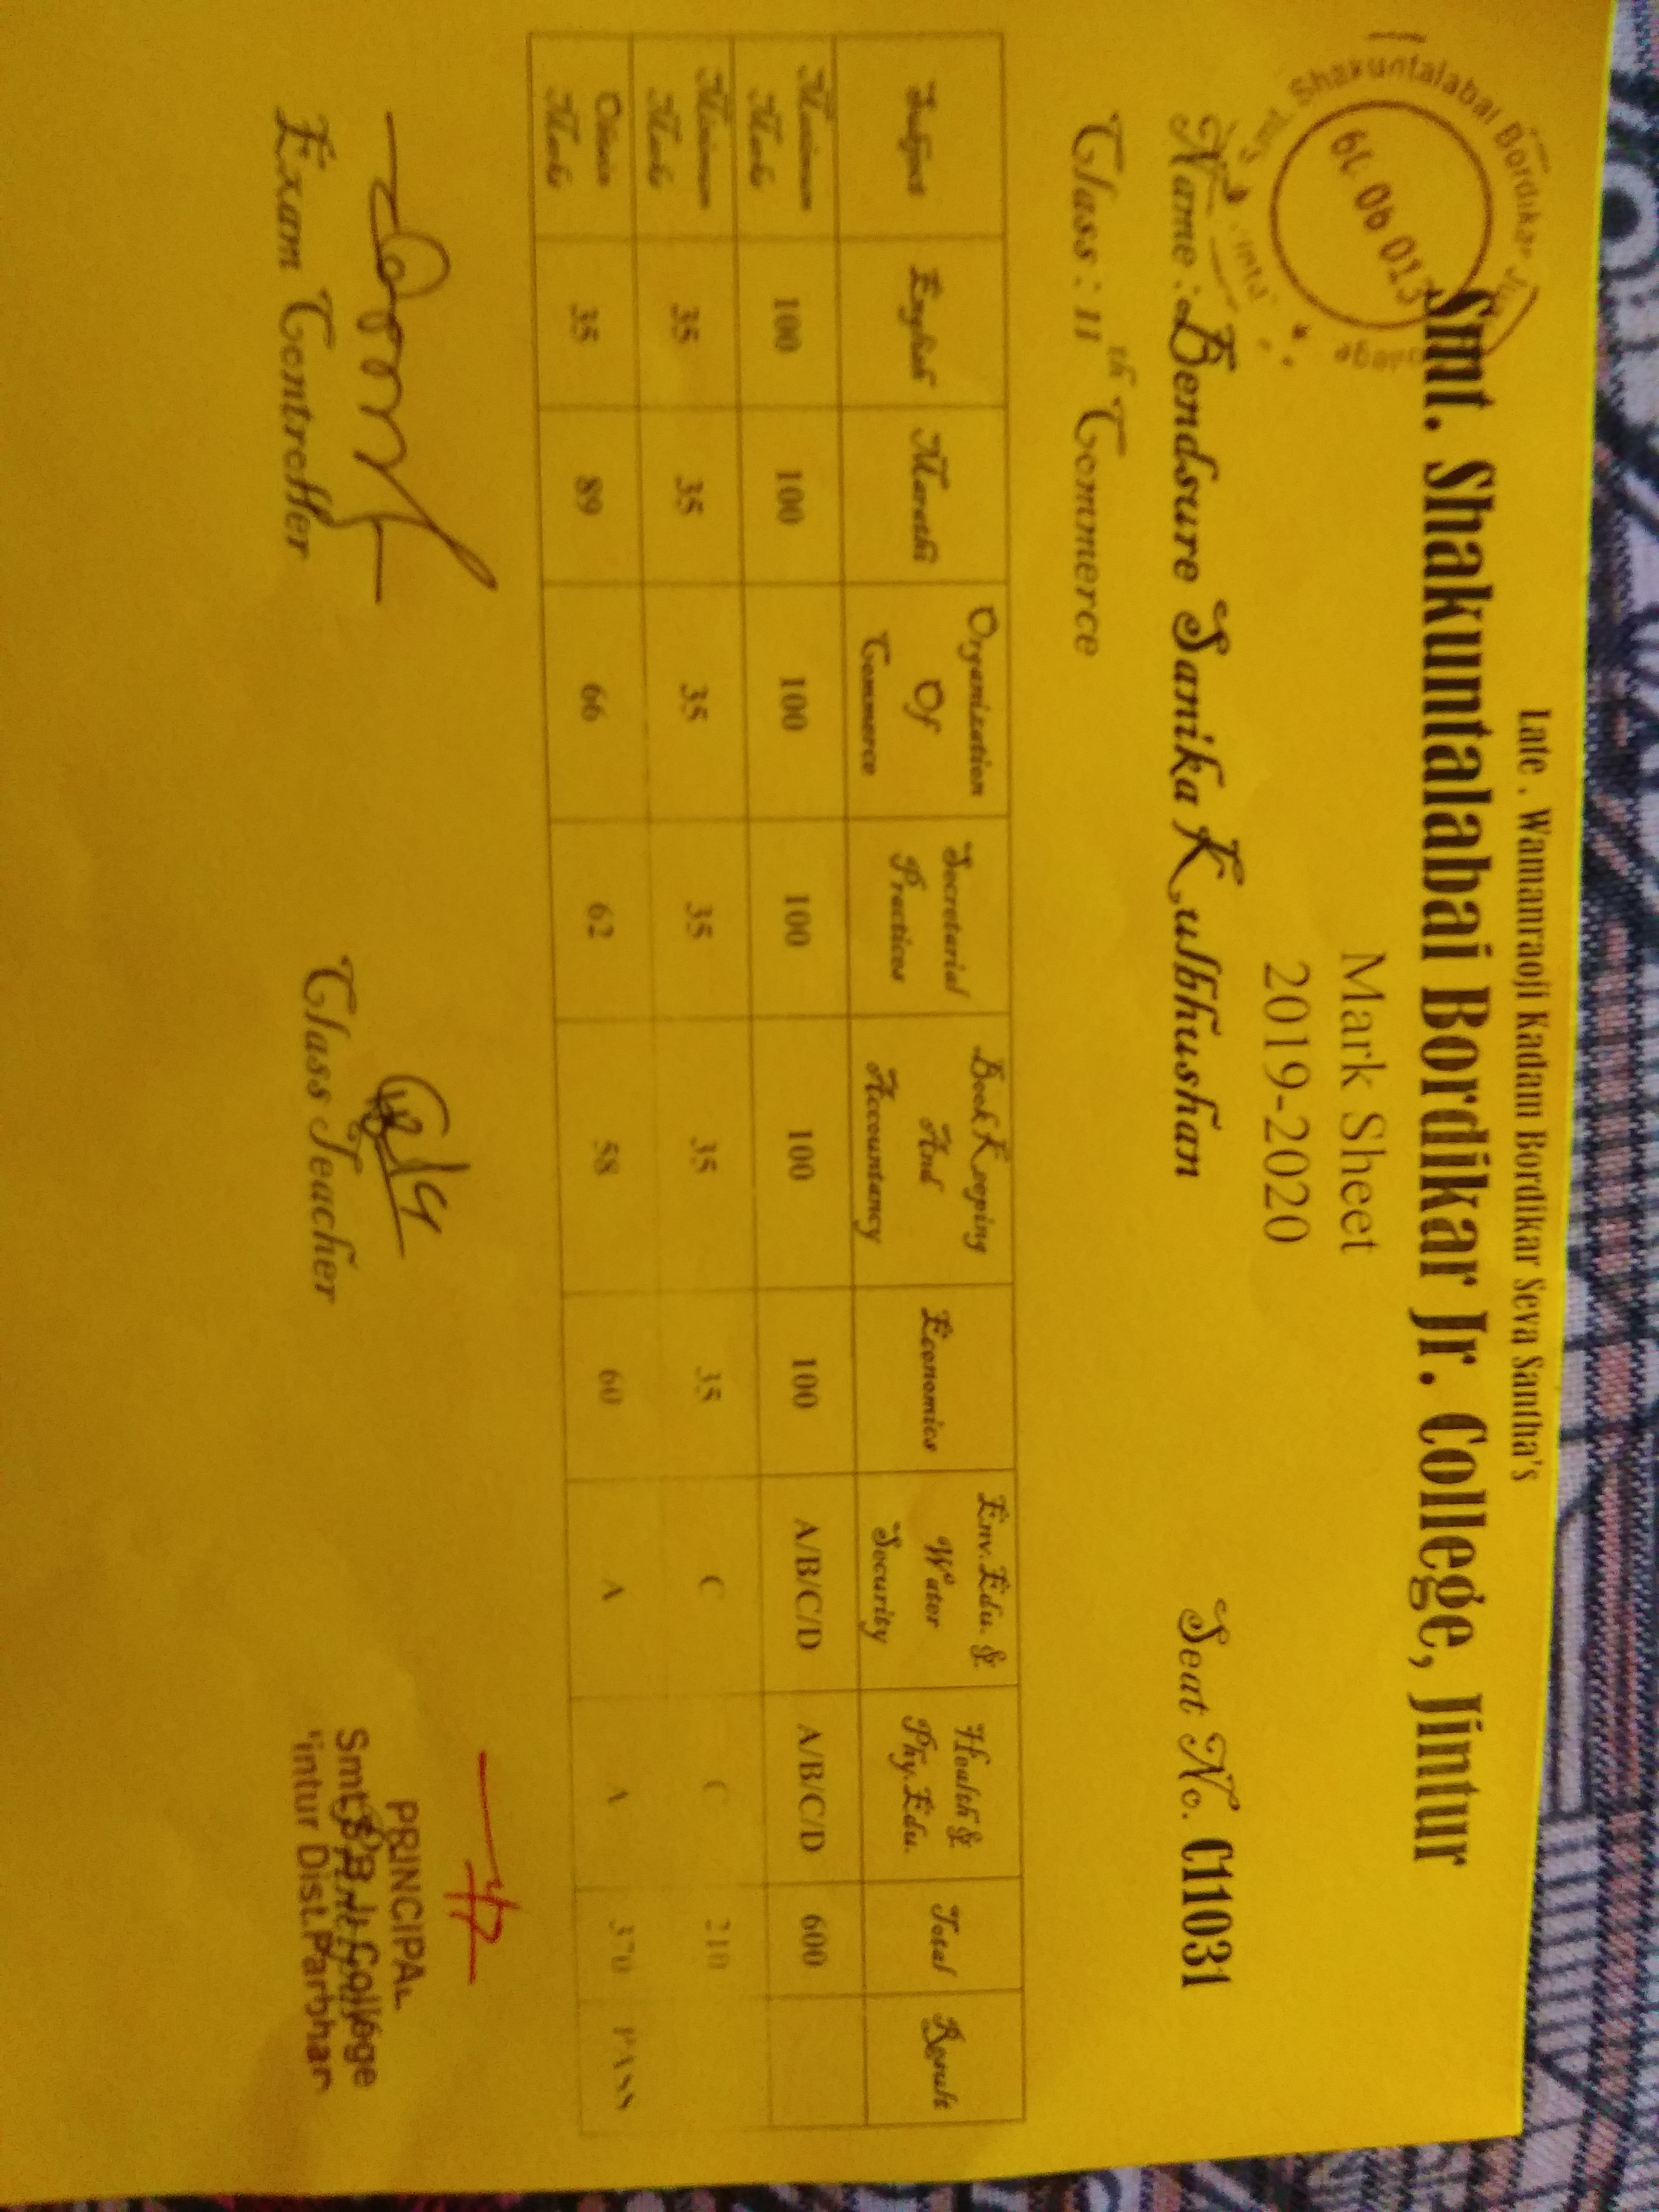 Late . Wamanraoji Kadam Bordikar Seva Santha's
Smt. Shakuntalabai Bordikar Jr. College, Jintur
Mark Sheet
2019-2020
Shakuntalabai Bordikar
61 06 013
Name : Bendsure Sanika Kulbhushan Seat No. C11031
Class : 11th Commerce
Subject English Marathi Organization Of Commerce Secretarial Practices Book Keeping And Accountancy Economics Env. Edu. & Water Security Health & Phy. Edu. Total Result
Maximum Marks 100 100 100 100 100 100 A/B/C/D A/B/C/D 600
Minimum Marks 35 35 35 35 35 35 C C 210
Obtain Marks 35 89 66 62 58 60 A A 370 PASS
Exam Controller Class Teacher
PRINCIPAL
Smt. S.B. Jr. College
Jintur Dist. Parbhani